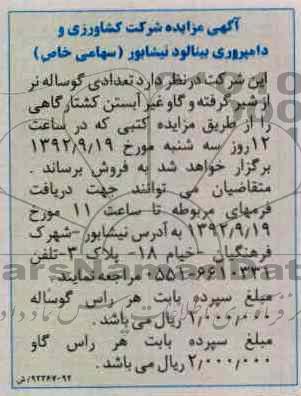 آگهی مزایده شرکت کشاورزی و
دامپروری بینالود نیشابور (سهامی خاص)
این شرکت در نظر دارد تعدادی گوساله نر
از شیر گرفته و گاو غیر آبستن کشتارگاهی
را از طریق مزایده کتبی که در ساعت
۱۲ روز سه شنبه مورخ ۱۳۹۲/۹/۱۹
برگزار خواهد شد به فروش برساند .
متقاضیان می توانند جهت دریافت
فرمهای مربوطه تا ساعت ۱۱ مورخ
۱۳۹۲/۹/۱۹ به آدرس نیشابور -شهرک
فرهنگیان -خیام ۱۸- پلاک ۳-تلفن
۰۵۵۱-۶۶۱۰۳۳۱ مراجعه نمایند.
مبلغ سپرده بابت هر راس گوساله
۲/۰۰۰/۰۰۰ ریال می باشد .
مبلغ سپرده بابت هر راس گاو
۲/۰۰۰/۰۰۰ ریال می باشد .
۹۲۲۶۷۰۹۲/ش